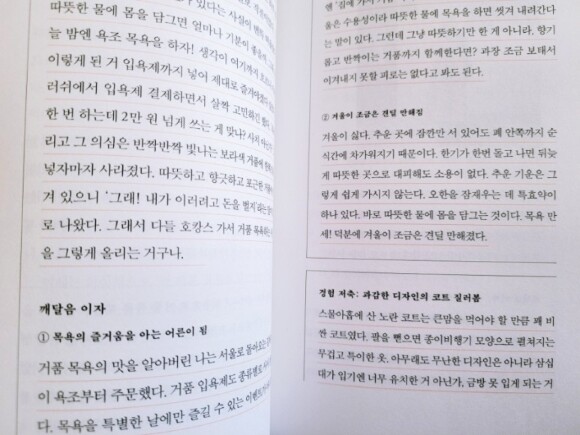 있다는 사실이
따뜻한 물에 몸을 담그면 얼마나 기분이 좋을까.
늘 밤엔 욕조 목욕을 하자! 생각이 여기까지
이렇게 된 거 입욕제까지 넣어 제대로 즐겨야겠
러쉬에서 입욕제 결제하면서 살짝 고민하긴 했다.
한 번 하는데 2만 원 넘게 쓰는 게 맞나? 사치
리고 그 의심은 반짝반짝 빛나는 보라색 거품에
넣자마자 사라졌다. 따뜻하고 향긋하고 포근한
겨 있으니 '그래! 내가 이러려고 돈을 벌지'라는
로 나왔다. 그래서 다들 호캉스 가서 거품 목욕하는
을 그렇게 올리는 거구나.
깨달음 이자
① 목욕의 즐거움을 아는 어른이 됨
거품 목욕의 맛을 알아버린 나는 서울로 돌아오는
이 욕조부터 주문했다. 거품 입욕제도 종류별로
다. 목욕을 특별한 날에만 즐길 수 있는 이벤트가
엔 '김에
울은 수용성이라 따뜻한 물에 목욕을 하면 씻겨 내려간다
는 말이 있다. 그런데 그냥 따뜻하기만 한 게 아니라, 향기
롭고 반짝이는 거품까지 함께한다면? 과장 조금 보태서
이겨내지 못할 피로는 없다고 봐도 된다.
② 겨울이 조금은 견딜 만해짐
겨울이 싫다. 추운 곳에 잠깐만 서 있어도 뼈 안쪽까지 순
식간에 차가워지기 때문이다. 한기가 한번 돌고 나면 뒤늦
게 따뜻한 곳으로 대피해도 소용이 없다. 추운 기운은 그
렇게 쉽게 가시지 않는다. 오한을 잠재우는 데 특효약이
하나 있다. 바로 따뜻한 물에 몸을 담그는 것이다. 목욕 만
세! 덕분에 겨울이 조금은 견딜 만해졌다.
경험 저축: 과감한 디자인의 코트 질러봄
스물아홉에 산 노란 코트는 큰맘을 먹어야 할 만큼 꽤 비
싼 코트였다. 팔을 뻗으면 종이비행기 모양으로 펼쳐지는
무겁고 특이한 옷. 아무래도 무난한 디자인은 아니라 삼십
대가 입기엔 너무 유치한 거 아닌가, 금방 못 입게 되는 거